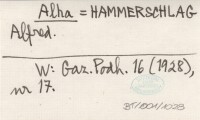 Alha = HAMMERSCHLAG
Alfred.
W: Gaz. Podh. 16 (1928),
nr 17.